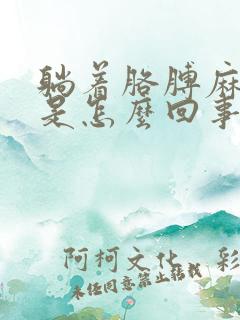 躺着胳膊麻
是怎麼回事
阿柯文化
彩
未经同意禁止转载